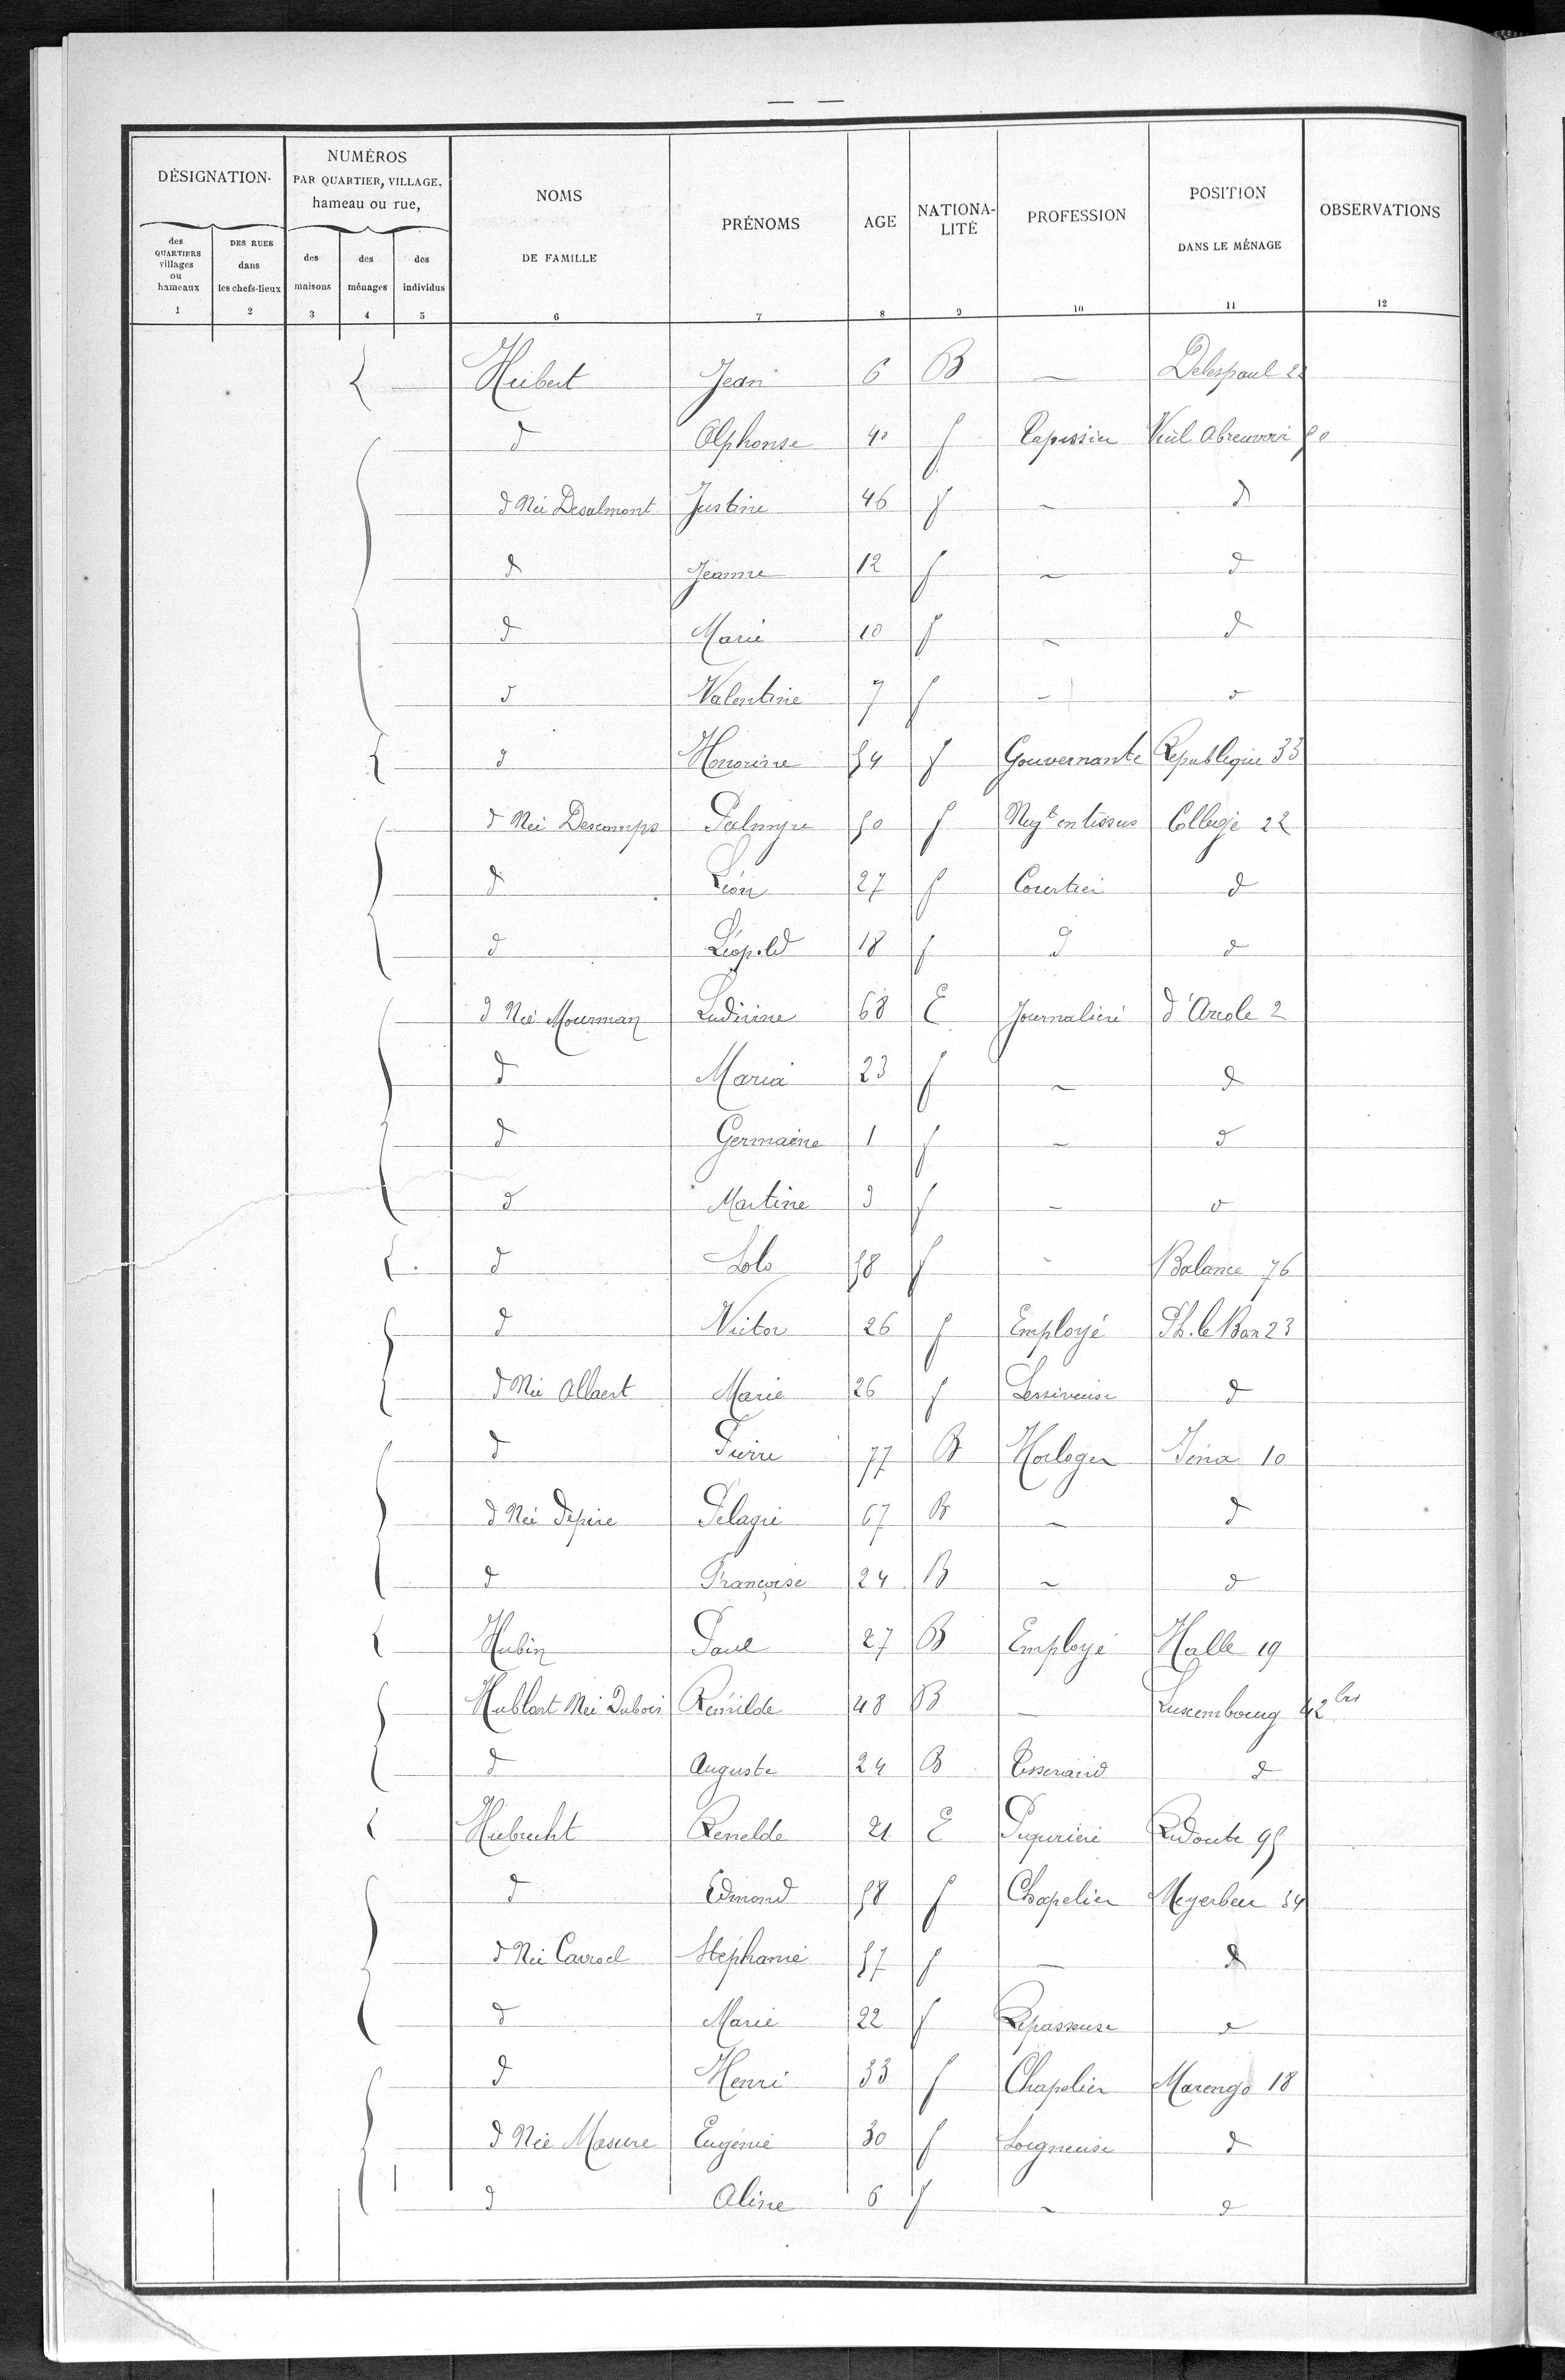 DÉSIGNATION.
NUMÉROS
PAR QUARTIER, VILLAGE.
hameau ou rue,
NOMS
DE FAMILLE
PRÉNOMS
AGE
NATIONA-
LITÉ
PROFESSION
POSITION
DANS LE MÉNAGE
OBSERVATIONS
des QUARTIERS villages ou hameaux
DES RUES dans les chefs-lieux
des maisons
des ménages
des individus
1 2 3 4 5 6 7 8 9 10 11 12
Hubert Jean 6 B — Delespaul 22
d Alphonse 40 f Tapissier Vieil Abreuvoir 50
d Née Desalmont Justine 46 f — d
d Jeanne 12 f — d
d Marie 10 f — d
d Valentine 7 f — d
d Honorine 54 f Gouvernante Republique 33
d Née Descamps Palmyre 50 f Negt en tissus College 22
d Léon 27 f Courtier d
d Léopold 18 f d d
d Née Mourman Ludivine 68 E Journalière d'Arcole 2
d Maria 23 f — d
d Germaine 1 f — d
d Martine 3 f — d
d Lolo 58 f — Balance 76
d Victor 26 f Employé Ph. le Bon 23
d Née Allaert Marie 26 f Lessiveuse d
d Pierre 77 B Horloger Iéna 10
d Née Pelagie 67 B — d
d Françoise 24 B — d
Hubin Paul 27 B Employé Halle 19
Hublart Née Dubois Remilde 48 B — Luxembourg 42 bis
d Auguste 24 B Tisserand d
Hubrecht Renelde 21 E Piqurière Redoute 95
d Edmond 58 f Chapelier Meyerbeer 34
d Née Stéphanie 57 f — d
d Marie 22 f Repasseuse d
d Henri 33 f Chapelier Marengo 18
d Née Masure Eugénie 30 f Soigneuse d
d Aline 6 f — d